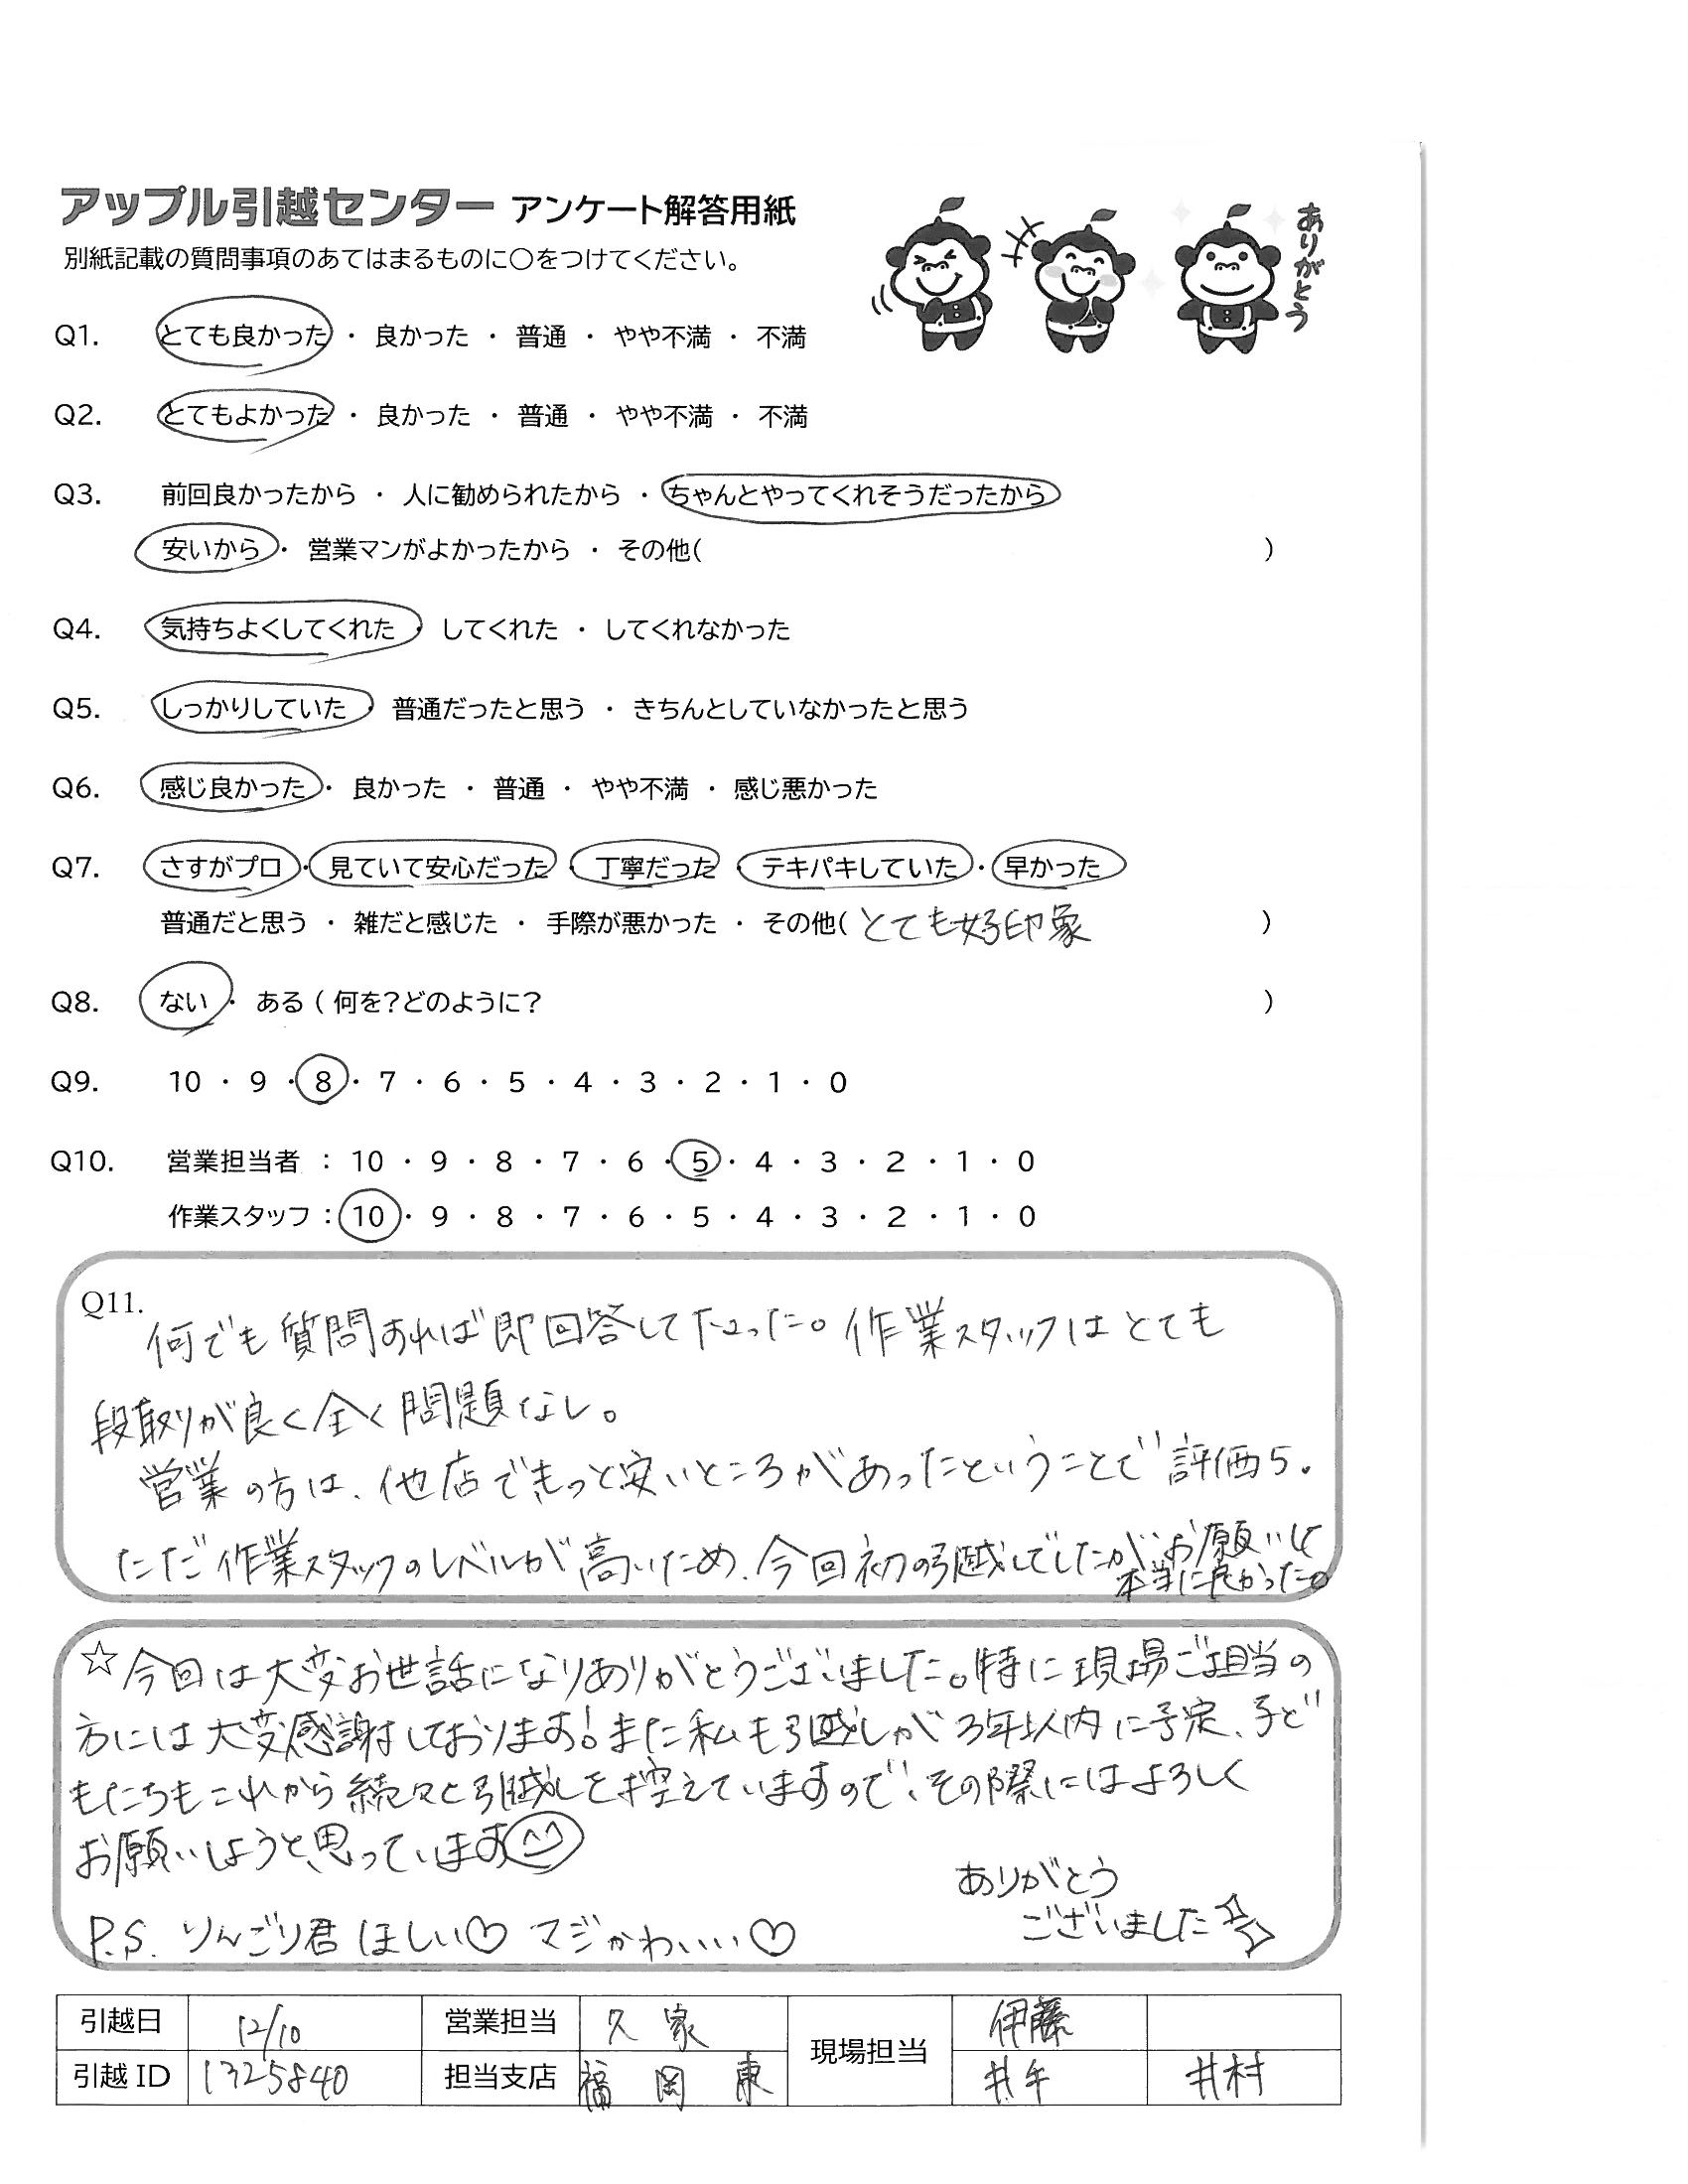 アップル引越センター アンケート解答用紙
別紙記載の質問事項のあてはまるものに○をつけてください。
ありがとう
Q1. とても良かった ・ 良かった ・ 普通 ・ やや不満 ・ 不満
Q2. とてもよかった ・ 良かった ・ 普通 ・ やや不満 ・ 不満
Q3. 前回良かったから ・ 人に勧められたから ・ ちゃんとやってくれそうだったから
安いから ・ 営業マンがよかったから ・ その他( )
Q4. 気持ちよくしてくれた ・ してくれた ・ してくれなかった
Q5. しっかりしていた ・ 普通だったと思う ・ きちんとしていなかったと思う
Q6. 感じ良かった ・ 良かった ・ 普通 ・ やや不満 ・ 感じ悪かった
Q7. さすがプロ ・ 見ていて安心だった ・ 丁寧だった ・ テキパキしていた ・ 早かった
普通だと思う ・ 雑だと感じた ・ 手際が悪かった ・ その他( とても好印象 )
Q8. ない ・ ある ( 何を?どのように? )
Q9. 10 ・ 9 ・ 8 ・ 7 ・ 6 ・ 5 ・ 4 ・ 3 ・ 2 ・ 1 ・ 0
Q10. 営業担当者 : 10 ・ 9 ・ 8 ・ 7 ・ 6 ・ 5 ・ 4 ・ 3 ・ 2 ・ 1 ・ 0
作業スタッフ : 10 ・ 9 ・ 8 ・ 7 ・ 6 ・ 5 ・ 4 ・ 3 ・ 2 ・ 1 ・ 0
Q11.
何でも質問あれば即回答して下さった。作業スタッフはとても
段取りが良く全く問題なし。
営業の方は、他店でもっと安いところがあったということで評価5.
ただ作業スタッフのレベルが高いため、今回初の引越しでしたが、お願いして
本当に良かった。
☆今回は大変お世話になりありがとうございました。特に現場ご担当の
方には大変感謝しております!また私も引越しが3年以内に予定、子ど
もたちもこれから続々と引越しを控えていますので、その際にはよろしく
お願いしようと思っています
ありがとう
ございました☆
P.S. りんごり君ほしい♡ マジかわいい♡
引越日 12/10 営業担当 久家 現場担当 伊藤
引越ID 1325840 担当支店 福岡東 井手 井村